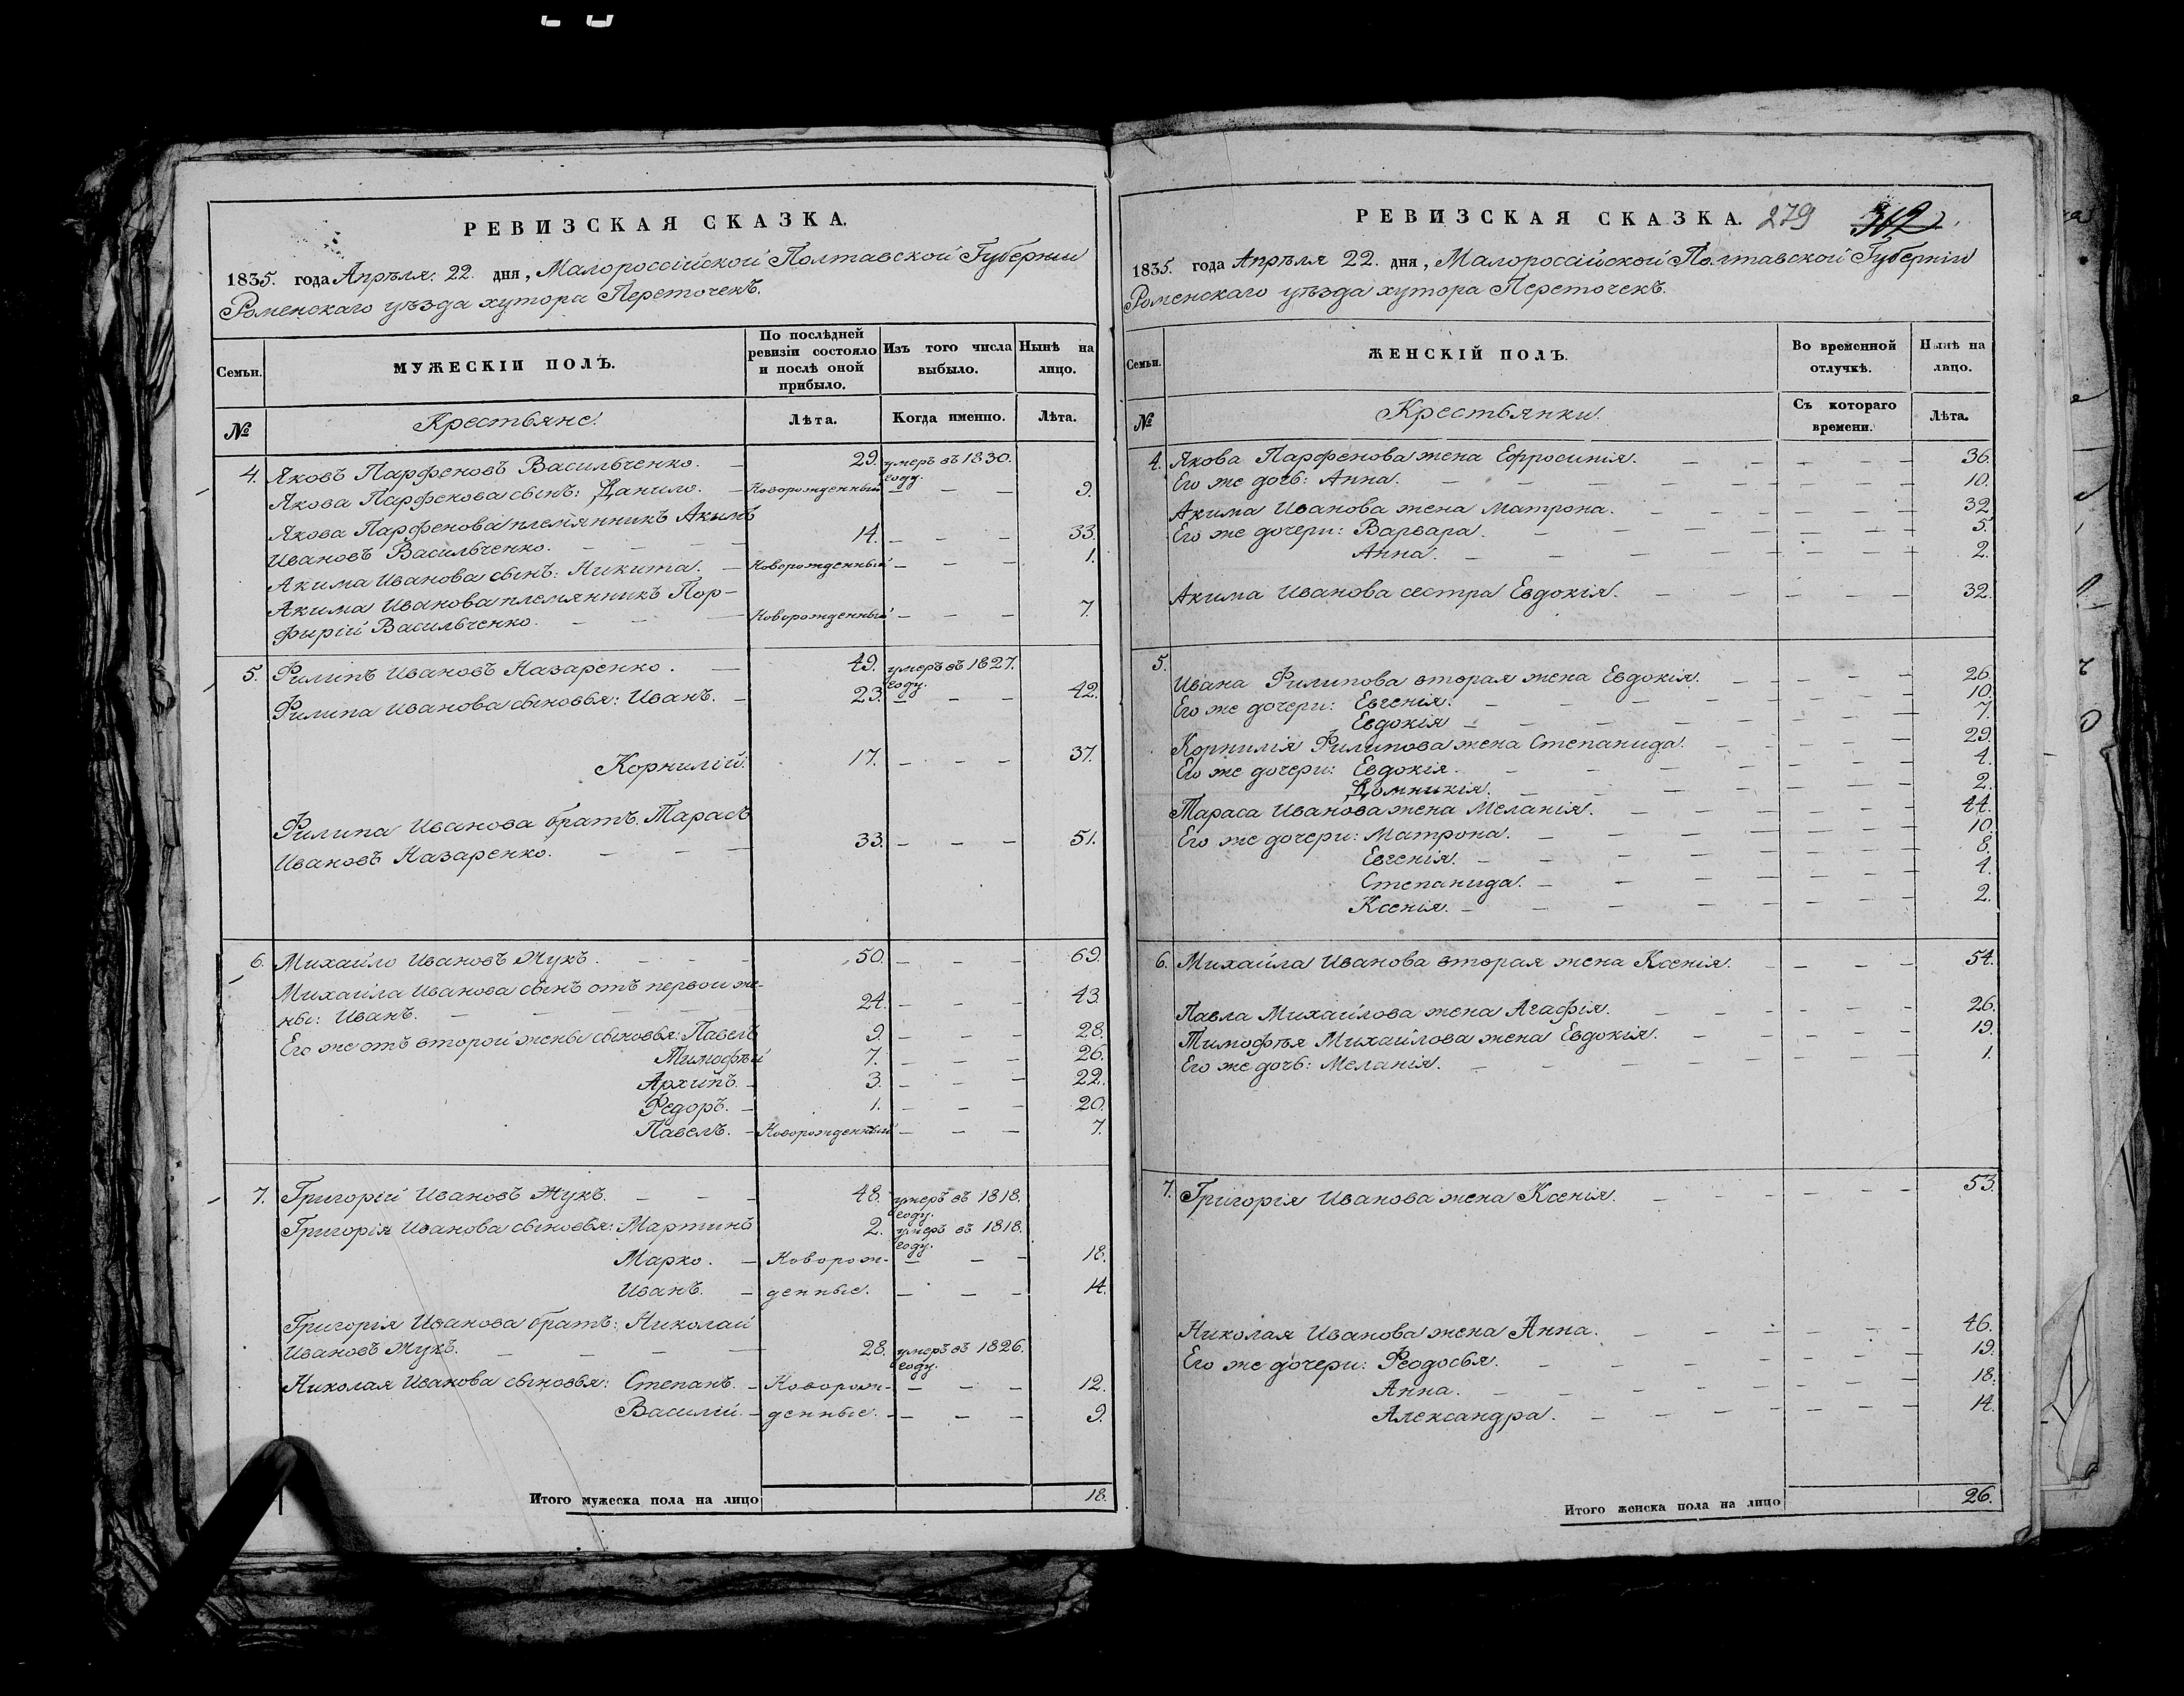 РЕВИЗСКАЯ СКАЗКА.
1835. года Апрѣля. 22. дня, Малороссійской Полтавской Губерніи
Роменскаго уѣзда хутора Переточекъ.
Семьи.
МУЖЕСКІИ ПОЛЪ.
По послѣдней ревизіи состояло и послѣ оной прибыло.
Изъ того числа выбыло.
Нынѣ на лицо.
№
Крестьяне.
Лѣта.
Когда именно.
Лѣта.
4. Яковъ Парфеновъ Васильченко. — 29. умеръ въ 1830. году.
Якова Парфенова сынъ: Данило. — Новорожденный — — — 9.
Якова Парфенова племянникъ Акимъ
Ивановъ Васильченко. — — — 14. — — — 33.
Акима Иванова сынъ: Никита. — Новорожденный — — — 1.
Акима Иванова племянникъ Пор-
фирій Васильченко. — — — Новорожденный — — — 7.
5. Филипъ Ивановъ Назаренко. — 49. умеръ въ 1827. году.
Филипа Иванова сыновья: Иванъ. — 23. — — — 42.
Корнилій. 17. — — — 37.
Филипа Иванова братъ. Тарасъ
Ивановъ Назаренко. — — — 33. — — — 51.
6. Михайло Ивановъ Жукъ. — — — 50. — — — 69.
Михайла Иванова сынъ отъ первой же-
ны: Иванъ. — — — — 24. — — — 43.
Его же отъ второй жены сыновья: Павелъ 9. — — — 28.
Тимофѣй 7. — — — 26.
Архипъ. — 3. — — — 22.
Федоръ. — 1. — — — 20.
Павелъ. — Новорожденный — — — 7.
7. Григорій Ивановъ Жукъ. — — — 48. умеръ въ 1818. году.
Григорія Иванова сыновья: Мартинъ 2. умеръ въ 1818. году.
Марко. — Новорож- — — — 18.
Иванъ. — денные. — — — 14.
Григорія Иванова братъ: Николай
Ивановъ Жукъ. — — — — 28. умеръ въ 1826. году.
Николая Иванова сыновья: Степанъ. — Новорож- — — — 12.
Василій. — денные. — — — 9.
Итого мужеска пола на лицо 18.
РЕВИЗСКАЯ СКАЗКА. 279
1835. года Апрѣля 22. дня, Малороссійской Полтавской Губерніи
Роменскаго уѣзда хутора Переточекъ.
Семьи.
ЖЕНСКІЙ ПОЛЪ.
Во временной отлучкѣ.
Нынѣ на лицо.
№
Крестьянки.
Съ котораго времени.
Лѣта.
4. Якова Парфенова жена Ефросинія. — — — — — 36.
Его же дочь: Анна. — — — — — 10.
Акима Иванова жена Матрона. — — — — — 32.
Его же дочери: Варвара. — — — — — 5.
Анна. — — — — — 2.
Акима Иванова сестра Евдокія. — — — — — 32.
5. Ивана Филипова вторая жена Евдокія. — — — — — 26.
Его же дочери: Евгенія. — — — — — 10.
Евдокія — — — — — 7.
Корнилія Филипова жена Степанида. — — — — — 29.
Его же дочери: Евдокія. — — — — — 4.
Домникія. — — — — — 2.
Тараса Иванова жена Меланія. — — — — — 44.
Его же дочери: Матрона. — — — — — 10.
Евгенія. — — — — — 8.
Степанида. — — — — — 4.
Ксенія. — — — — — 2.
6. Михайла Иванова вторая жена Ксенія. — — — — 54.
Павла Михайлова жена Агафія. — — — — — 26.
Тимофѣя Михайлова жена Евдокія. — — — — — 19.
Его же дочь: Меланія. — — — — — 1.
7. Григорія Иванова жена Ксенія. — — — — — 53.
Николая Иванова жена Анна. — — — — — 46.
Его же дочери: Феодосья. — — — — — 19.
Анна. — — — — — 18.
Александра. — — — — — 14.
Итого женска пола на лицо 26.